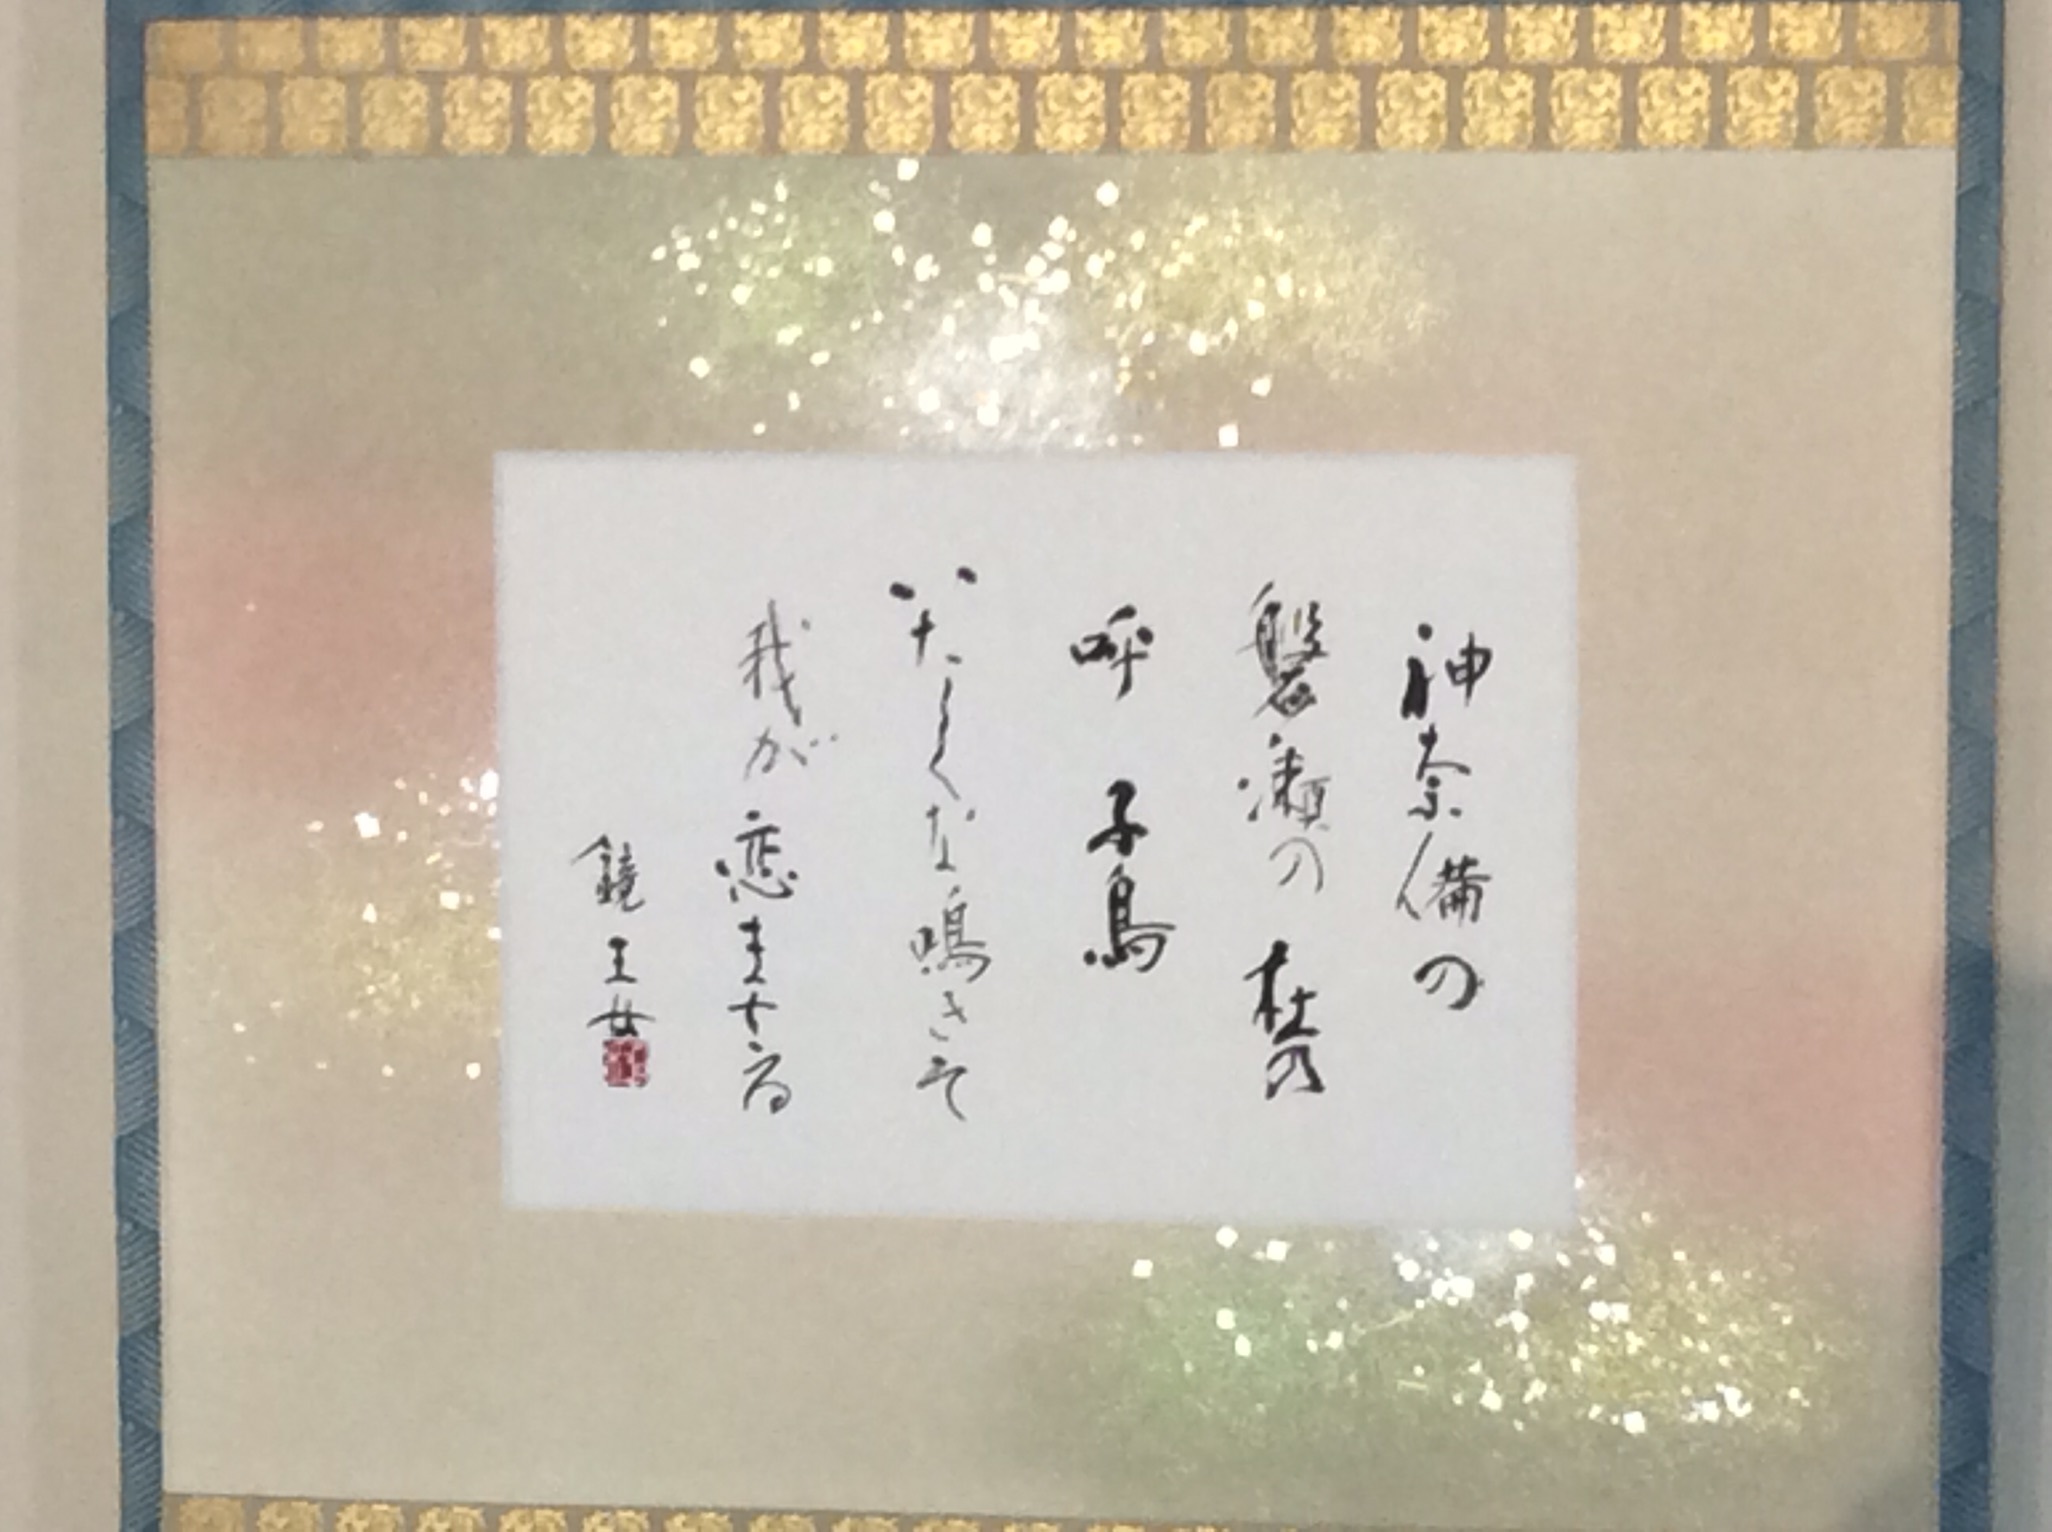 神奈備の
磐瀬の杜の
呼子鳥
いたくな鳴きそ
我が恋まさる
鏡王女